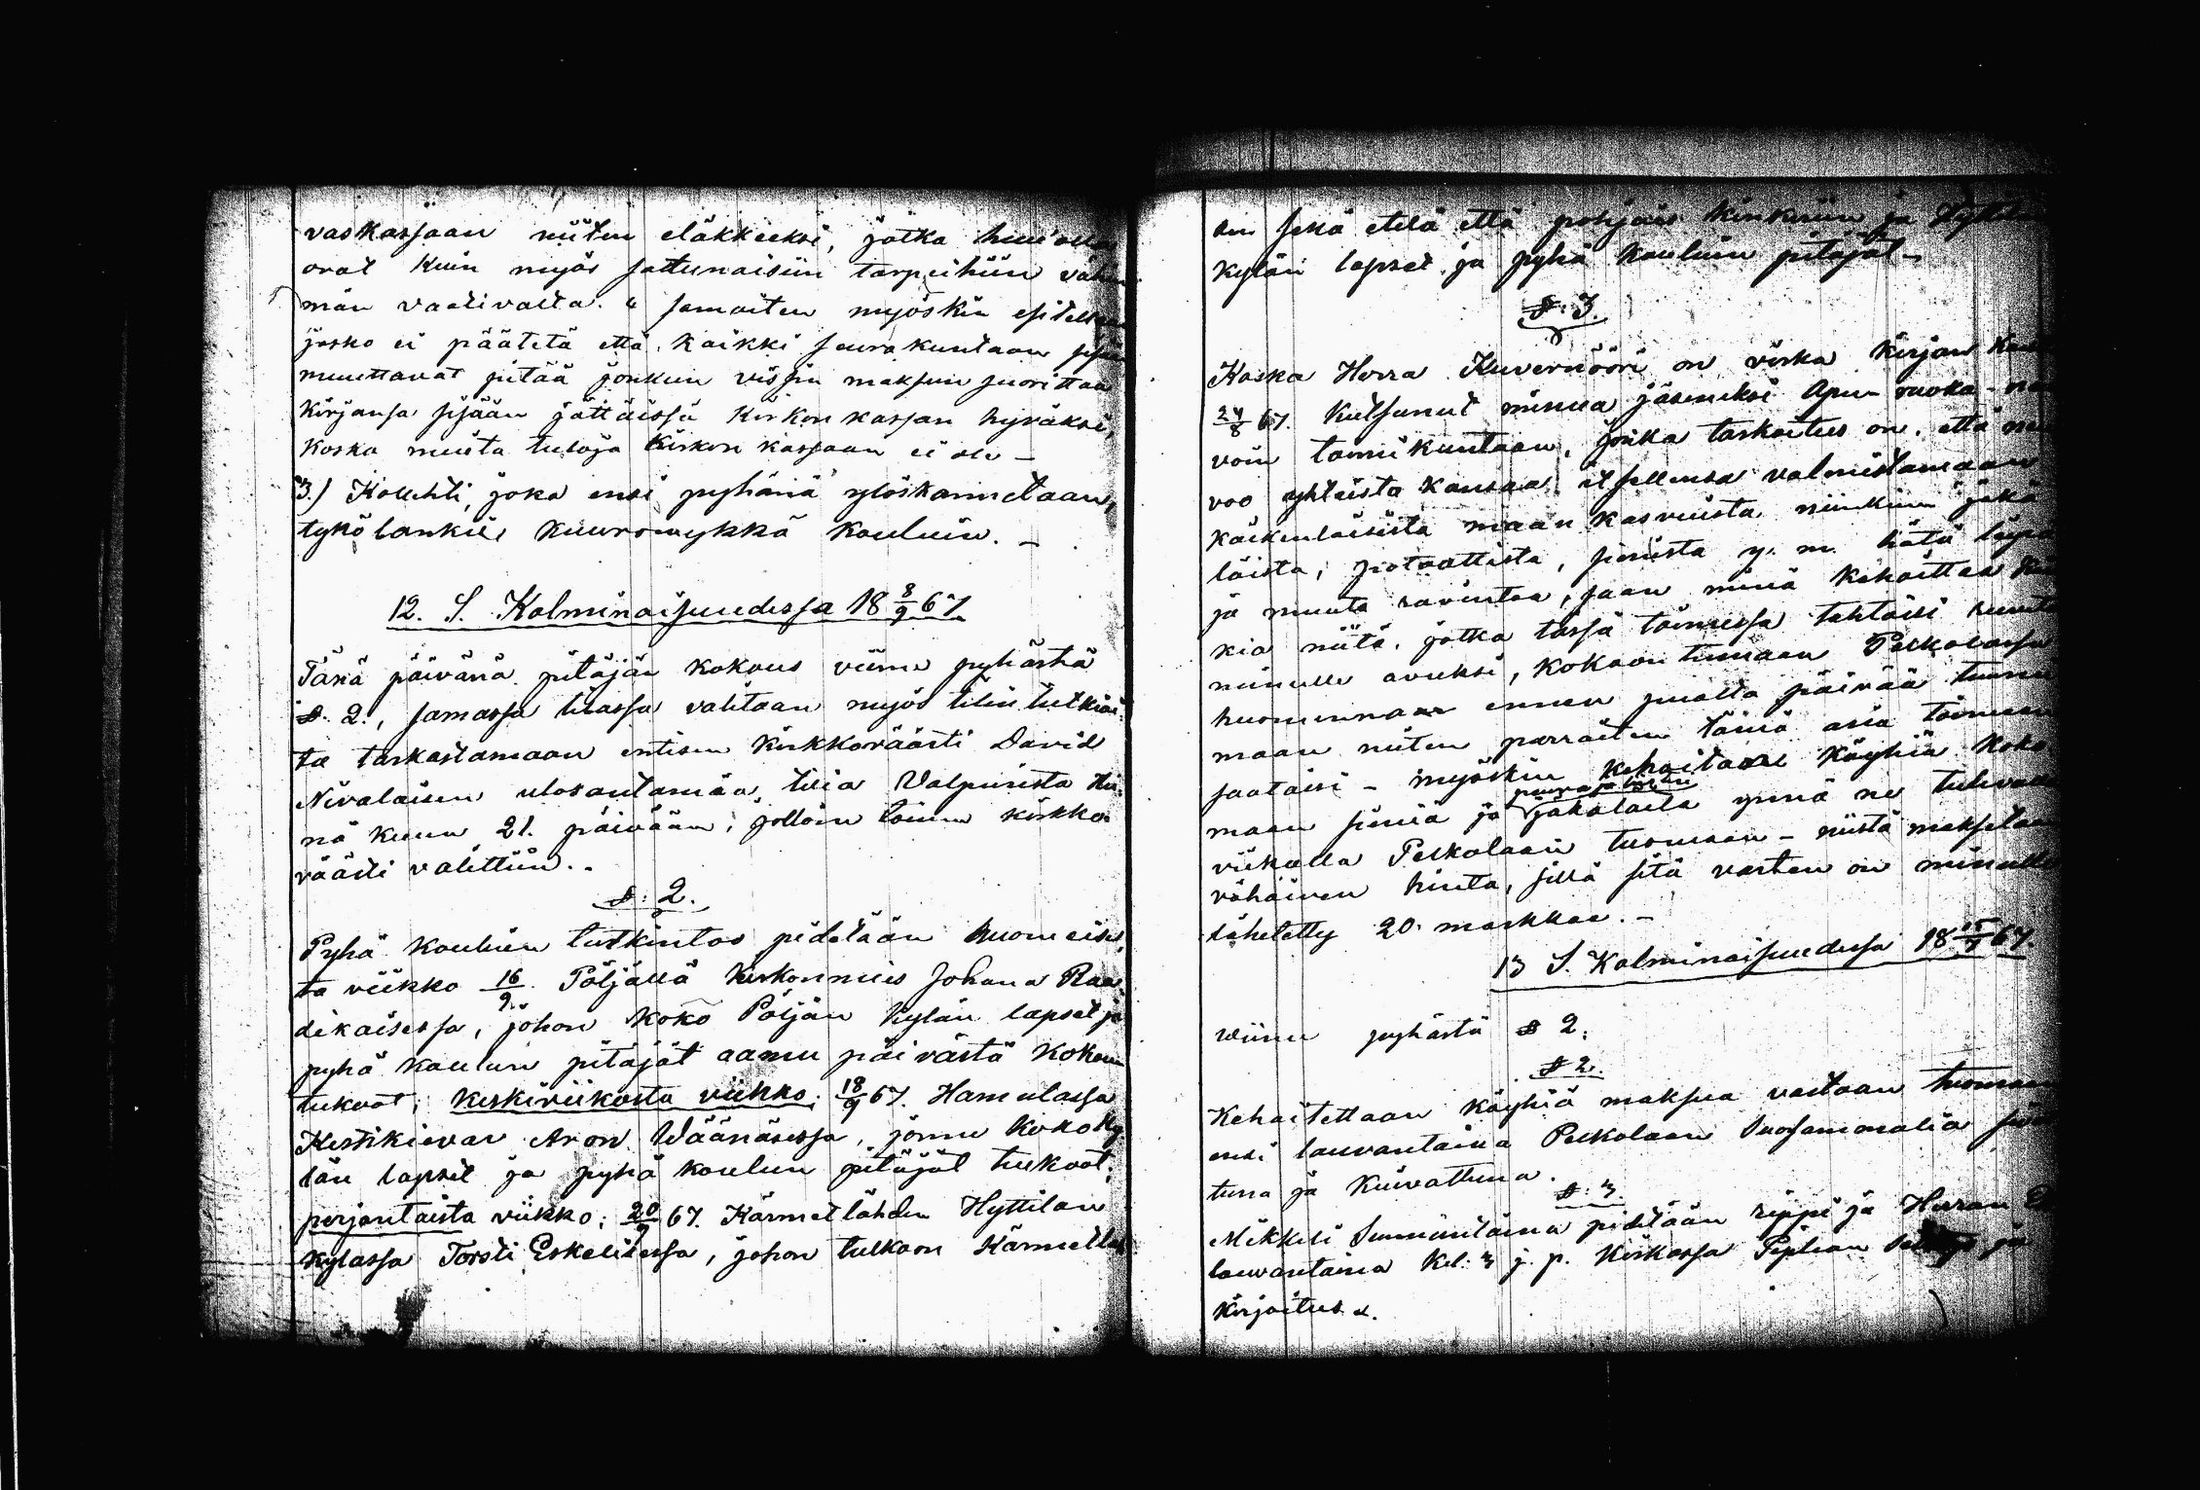 vaskassaan niiten eläkkeeksi, jotka huu'olla
ovat kuin myös sattunaisiin tarpeihiin vähim
män vaativalta. " samaiten myöskin esitellään
josko ei päätetä että kaikki seurakuntaan sisään
muuttavat pitää jonkun vissin maksun suorittaa
kirjansa sisään jättäissä kirkon kassan hyväksi,
koska muita tuloja kirkon kassaan ei ole –
3.) Kollehti, joka ensi pyhänä ylöskannetaan,
tykö lankiee kuuromykkä kouluin. –
12. S. Kolminaisuudessa 18 8/9 67.
Tänä päivänä pitäjän kokous viime pyhästä
§. 2., samassa tilassa valitaan myös tilin tutkioi-
ta tarkastamaan entisen kirkkoväärti David
Nivalaisen ulosantamia tiliä Valpurista Hei-
nä kuun 21. päivään, jolloin toinen kirkko-
väärti valittiin. .
§: 2.
Pyhä kouluin tutkintoo pidetään huomeisis-
ta viikko 16/9. Pöljällä kirkonmies Johana Raa-
dikaisessa, johon koko Pöljän kylän lapset ja
pyhä kouluin pitäjät aamu päivästä kokoon
tulkoot; keskiviikosta viikko; 18/9 67. Hamulassa
Kestikievar Aron Wäänäsessa, jonne koko ky-
län lapset ja pyhä koulun pitäjät tulkoot;
perjantaista viikko; 20/9 67. Kärmetlahden Hyttilän
kylässä Torsti Eskelisessa, johon tulkoon Kärmetlah
den sekä etelä että pohjais kinkeriin ja
kylän lapset ja pyhä kouluin pitäjät –
§: 3.
Koska Herra Kuvernööri on virka kirjan kautta
24/8 67. kutsunut minua jäseneksi apu- ruoka-
voin toimikuntaan, jonka tarkoitus on, että neu
voo yhteistä kansaa itsellensa valmistamaan
kaikenlaisista maan kasvuista, niinkuin jäkä
läistä, potaattista, sienistä y. m. hätä leipää
ja muuta ravintoa, saan minä kehoittaa kaik
kia niitä, jotka tässä toimessa tahtoisi ruveta
minulle avuksi, kokoontumaan Pelkolassa
huomennaan ennen puolta päivää tuumaa
maan miten parraiten tämä asia toimeen
saataisi – myöskin kehoitaan köyhiä koko
maan sieniä ja jäkälöitä ynnä ne tulevalla
viikolla Pelkolaan tuomaan – niistä maksetaan
vähäinen hinta, sillä sitä varten on minulle
lähetetty 20. markkaa. –
13 S. Kolminaisuudessa 18 15/9 67.
Wiime pyhästä § 2.
§ 2.
Kehoitettaan köyhiä maksua vastaan tuomaan
ensi lauvantaina Pelkolaan
tuna ja kuivattuna.
§: 3.
Mikkeli Sunnuntaina pidetään rippi ja Herran E
lauvantaina kel: 3 j. p. Kirkossa Piplian
kirjoitus.